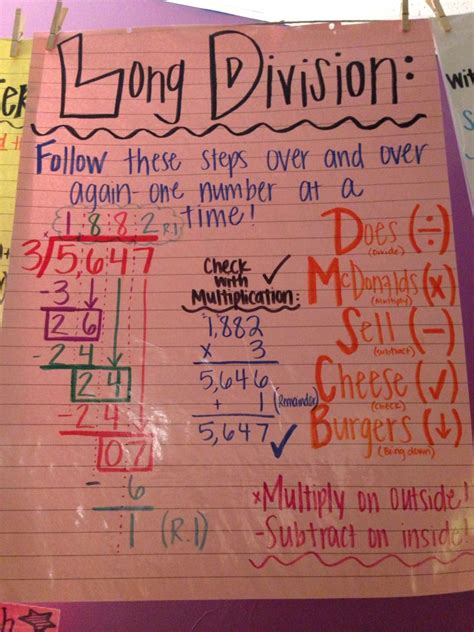 Long Division:
Follow these steps over and over
again-one number at a
time!
1,882 R.1
3/5,647
-3
26
-24
24
-24
07
-6
1 (R.1)
Check
with
Multiplication: ✓
1,882
x 3
5,646
+ 1 (Remainder)
5,647 ✓
Does (÷)
(Divide)
McDonalds (x)
(Multiply)
Sell (−)
(subtract)
Cheese (✓)
(check)
Burgers (↓)
(Bring down)
xMultiply on outside!
-Subtract on inside!